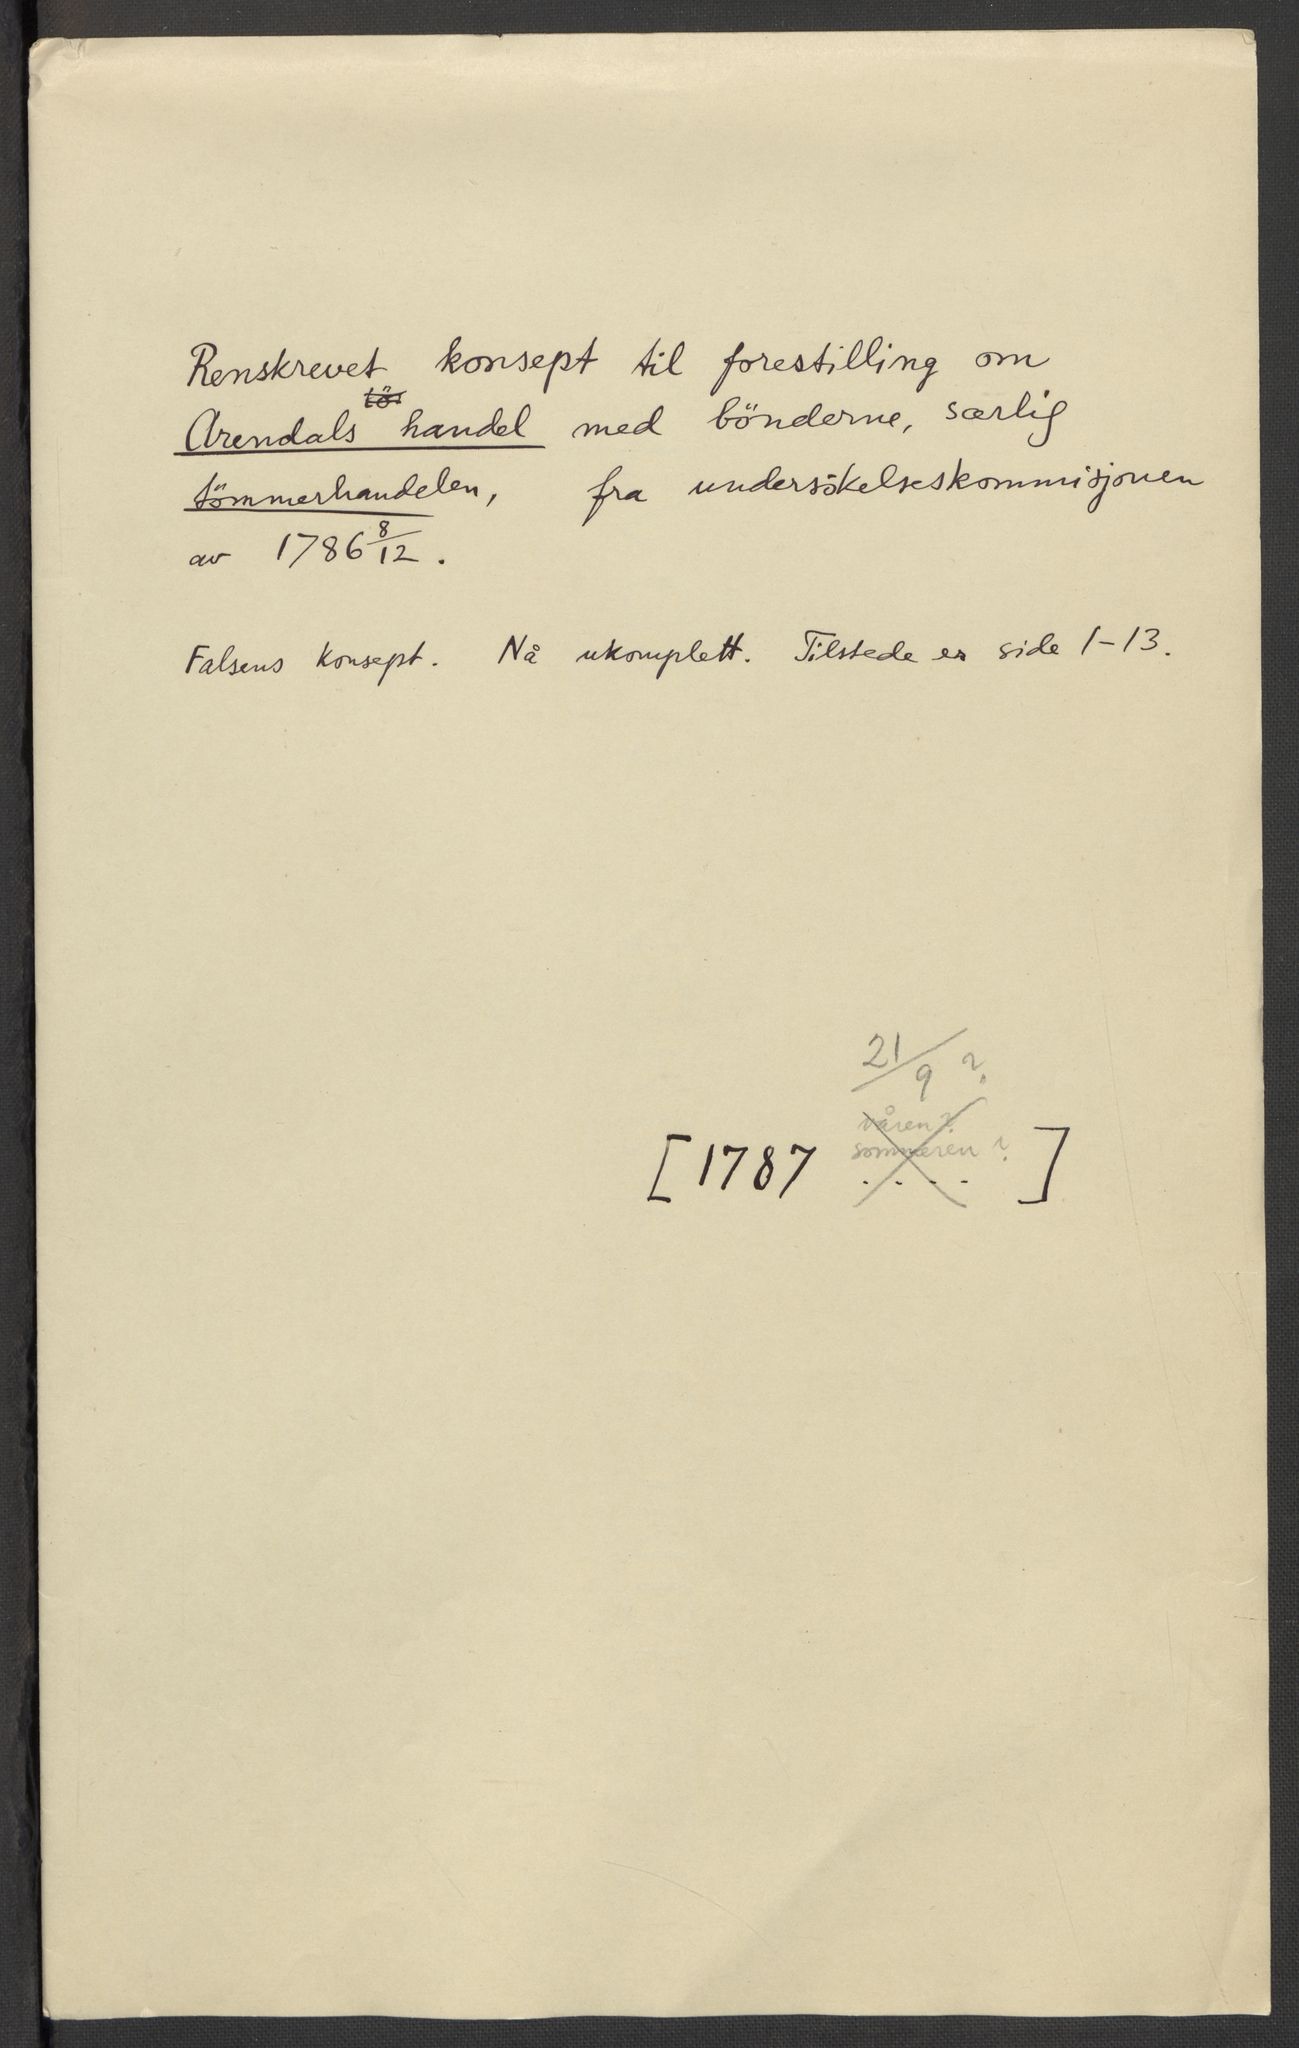 Renskrevet konsept til forestilling om
tös
Arendals handel med bönderne, særlig
tömmerhandelen, fra undersökelseskommisjonen
av 1786 8/12.
Falsens konsept. Nå ukomplett. Tilstede er side 1-13.
21/9 ?
våren?
[1787 sommeren ? ]
. . . .